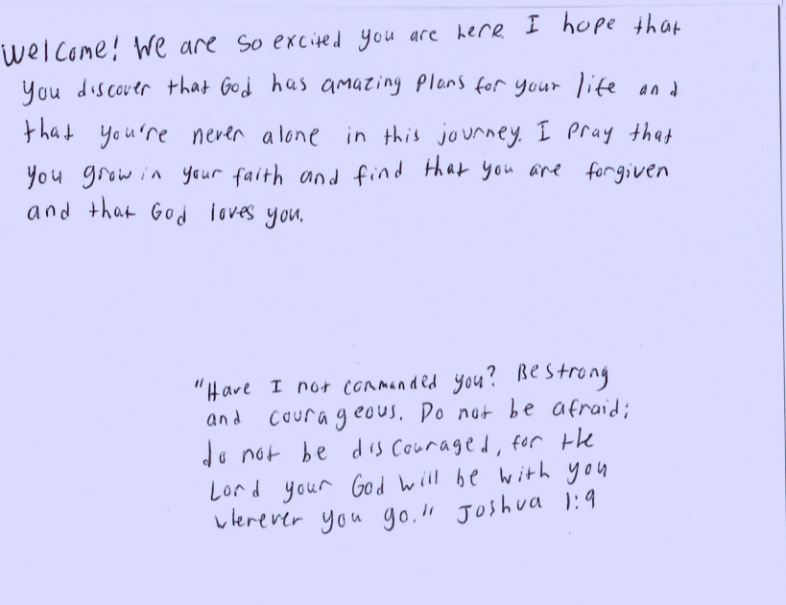 Welcome! We are so excited you are here. I hope that
you discover that God has amazing plans for your life and
that you're never alone in this journey. I pray that
you grow in your faith and find that you are forgiven
and that God loves you.
"Have I not commanded you? Be strong
and courageous. Do not be afraid;
do not be discouraged, for the
Lord your God will be with you
wherever you go." Joshua 1:9